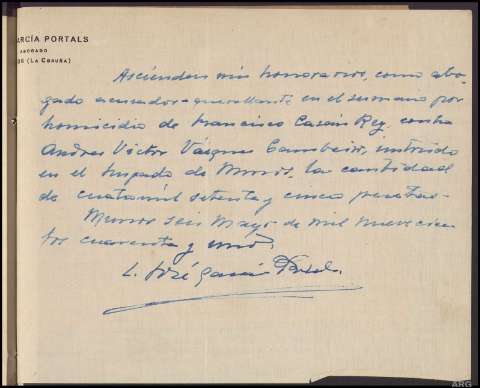 ARCÍA PORTALS
ABOGADO
OS (LA CORUÑA)
Ascienden mis honorarios, como abo-
gado acusador-querellante en el sumario por
homicidio de Francisco Casais Rey contra
Andres Victor Vázquez Cambeiro, instruido
en el Juzgado de Muros, la cantidad
de cuatromil setenta y cinco pesetas-
Muros seis Mayo de mil novecien
tos cuarenta y uno.
L. José García Portals.
ARG